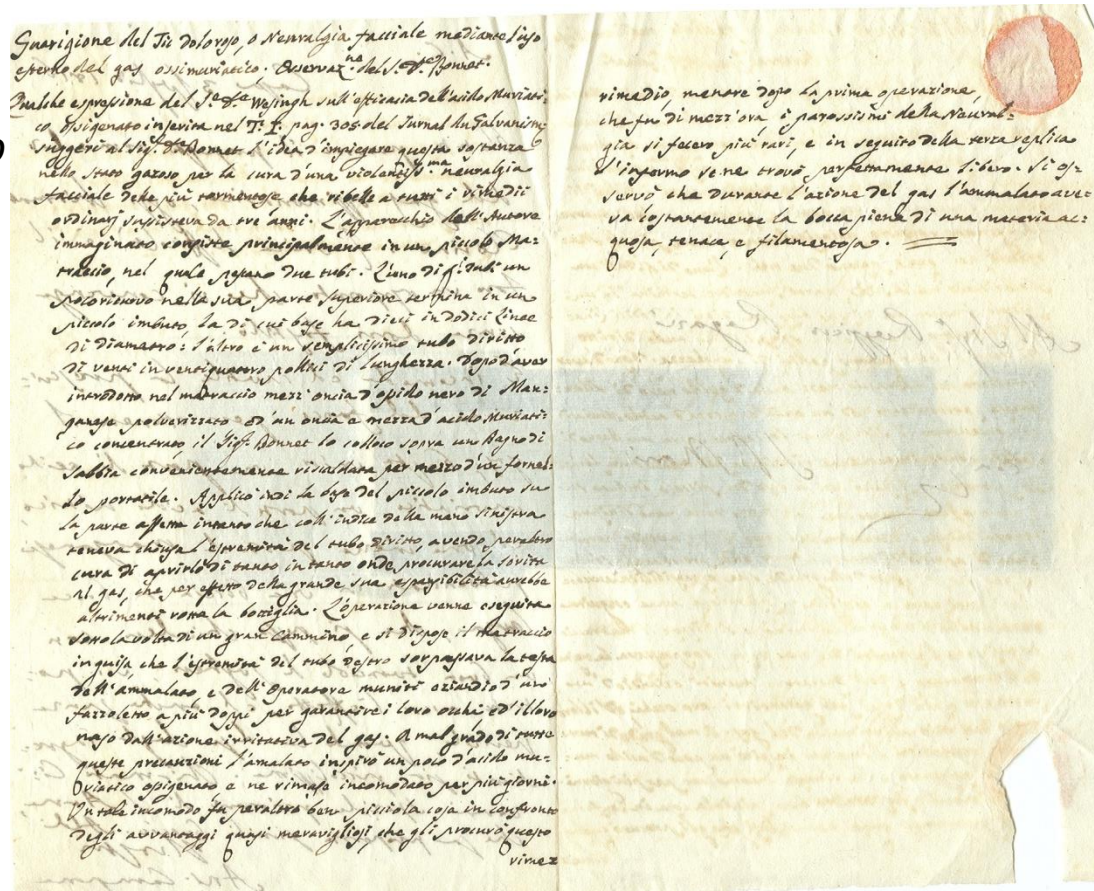 Guarigione del Tic doloroso, o Nevralgia facciale mediante l'uso
esterno del gas ossimuriatico. Osservaz.ne del S.r D.re Bonnet.
Qualche espressione del S.r D.re Wesingh sull'efficacia dell'acido Muriati-
co ossigenato inserita nel T. I. pag. 305 del Jurnal du Galvanism
suggerì al Sig.r D.re Bonnet l'idea d'impiegare questa sostanza
nello stato gazoso per la cura d'una violentiss.ma neuralgia
facciale delle più tormentose che ribelle a tutti i rimedii
ordinarj sussisteva da tre anni. L'apparecchio dall'Autore
immaginato consiste principalmente in un piccolo Ma-
traccio, nel quale pescano due tubi. L'uno di q.i tubi un
poco ricurvo nella sua parte superiore termina in un
piccolo imbuto, la di cui base ha dieci in dodici linee
di diametro: l'altro è un semplicissimo tubo diritto
di venti in ventiquattro pollici di lunghezza. Dopo d'aver
introdotto nel matraccio mezz'oncia d'ossido nero di Man-
ganese polverizzato ed un'oncia e mezza d'acido Muriati-
co concentrato, il Sig.r Bonnet lo collocò sopra uno Bagno di
sabbia convenientemente riscaldata per mezzo d'un fornel-
lo portatile. Applicò indi la base del piccolo imbuto su
la parte affetta intanto che coll'indice della mano sinistra
teneva chiusa l'estremità del tubo diritto, avendo peraltro
cura di aprirlo di tanto in tanto onde procurare la sortita
al gas, che per effetto della grande sua espansibilità avrebbe
altrimenti rotta la bottiglia. L'operazione venne eseguita
sotto la volta di un gran cammino e si dispose il matraccio
in guisa che l'estremità del tubo destro sorpassava la testa
dell'ammalato, e dell'operatore muniti eziandio d'uno
fazzoletto a più doppi per garantire i loro occhi ed il loro
naso dall'azione irritativa del gas. A mal grado di tutte
queste precauzioni l'amalato inspirò un poco d'acido mu-
riatico ossigenato e ne rimase incomodato per più giorni.
Un tale incomodo fu peraltro ben picciola cosa in confronto
degli avvantaggi quasi meravigliosi che gli procurò questo
rimez
rimadio, mentre dopo la prima operazione,
che fu di mezz'ora i parossismi della Neural-
gia si fecero più rari, e in seguito della terza replica
l'infermo se ne trovò perfettamente libero. Si os-
servò che durante l'azione del gas l'ammalato ave-
va costantemente la bocca piena di una materia ac-
quosa, tenace, e filamentosa.